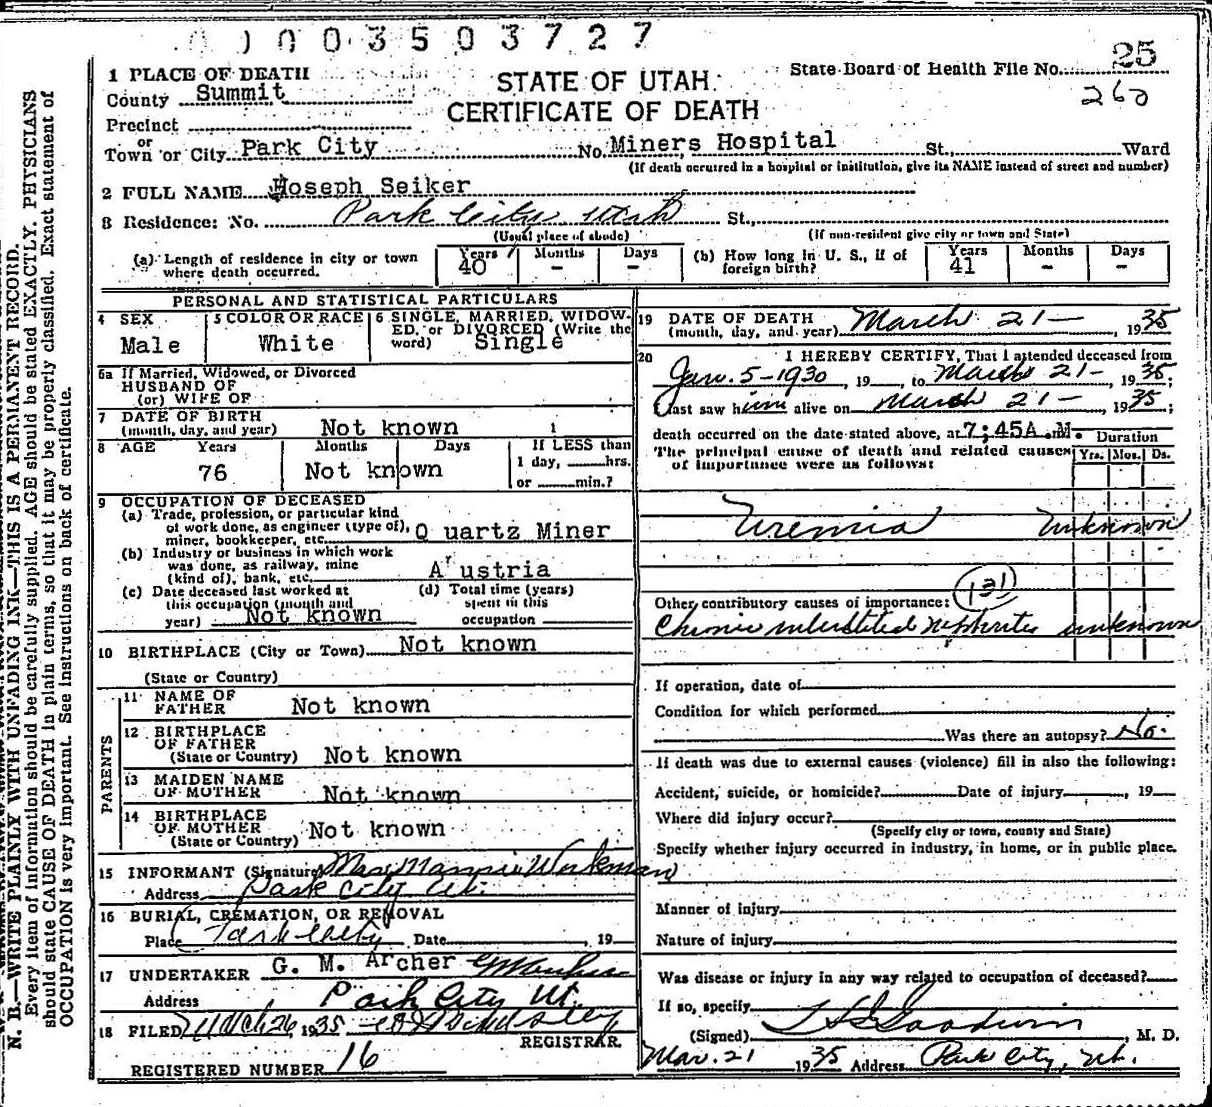 0 1 0 0 3 5 0 3 7 2 7
25
260
State Board of Health File No.
STATE OF UTAH
CERTIFICATE OF DEATH
1 PLACE OF DEATH
County Summit
Precinct
or
Town or City Park City No. Miners Hospital St., Ward
(If death occurred in a hospital or institution, give its NAME instead of street and number)
2 FULL NAME Joseph Seiker
3 Residence: No. Park City Utah St.,
(Usual place of abode) (If non-resident give city or town and State)
(a) Length of residence in city or town where death occurred. Years 40 Months - Days -
(b) How long in U. S., if of foreign birth? Years 41 Months - Days -
PERSONAL AND STATISTICAL PARTICULARS
4 SEX Male
5 COLOR OR RACE White
6 SINGLE, MARRIED, WIDOWED, or DIVORCED (Write the word) Single
6a If Married, Widowed, or Divorced
HUSBAND OF
(or) WIFE OF
7 DATE OF BIRTH
(month, day, and year) Not known
8 AGE Years Months Days If LESS than
76 Not known 1 day, hrs.
or min.?
9 OCCUPATION OF DECEASED
(a) Trade, profession, or particular kind
of work done, as engineer (type of),
miner, bookkeeper, etc. Quartz Miner
(b) Industry or business in which work
was done, as railway, mine
(kind of), bank, etc. Austria
(c) Date deceased last worked at
this occupation (month and
year) Not known
(d) Total time (years)
spent in this
occupation
10 BIRTHPLACE (City or Town) Not known
(State or Country)
PARENTS
11 NAME OF
FATHER Not known
12 BIRTHPLACE
OF FATHER
(State or Country) Not known
13 MAIDEN NAME
OF MOTHER Not known
14 BIRTHPLACE
OF MOTHER
(State or Country) Not known
15 INFORMANT (Signature) Mrs Mannie Workman
Address Park City Ut.
16 BURIAL, CREMATION, OR REMOVAL
Place Park City Date , 19
17 UNDERTAKER G. M. Archer
Address Park City Ut.
18 FILED March 26, 1935
REGISTRAR
REGISTERED NUMBER 16
19 DATE OF DEATH
(month, day, and year) March 21- , 1935
20 I HEREBY CERTIFY, That I attended deceased from
Jan. 5-1930 , 19 , to March 21- , 1935;
I last saw him alive on March 21- , 1935;
death occurred on the date stated above, at 7;45A.M.
The principal cause of death and related causes
of importance were as follows:
Duration
Yrs. Mos. Ds.
Uremia unknown
131
Other contributory causes of importance:
Chronic interstitial nephritis unknown
If operation, date of
Condition for which performed
Was there an autopsy? No.
If death was due to external causes (violence) fill in also the following:
Accident, suicide, or homicide? Date of injury , 19
Where did injury occur?
(Specify city or town, county and State)
Specify whether injury occurred in industry, in home, or in public place.
Manner of injury
Nature of injury
Was disease or injury in any way related to occupation of deceased?
If so, specify
(Signed) Goodwin , M. D.
Mar. 21 1935 Address Park City, Ut.
N. B.—WRITE PLAINLY WITH UNFADING INK—THIS IS A PERMANENT RECORD.
Every item of information should be carefully supplied. AGE should be stated EXACTLY. PHYSICIANS
should state CAUSE OF DEATH in plain terms, so that it may be properly classified. Exact statement of
OCCUPATION is very important. See instructions on back of certificate.